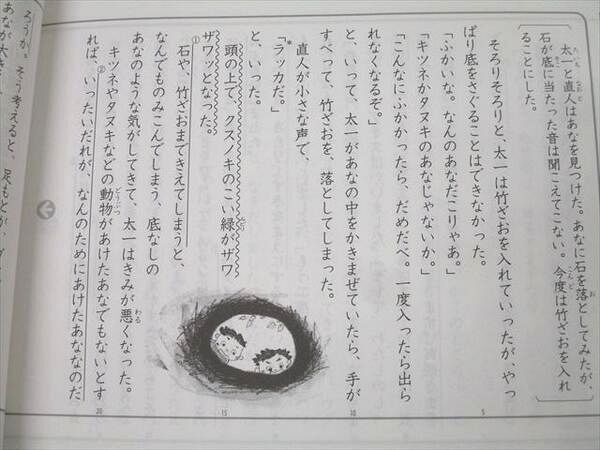 太一と直人はあなを見つけた。あなに石を落としてみたが、
石が底に当たった音は聞こえてこない。今度は竹ざおを入れ
ることにした。
そろりそろりと、太一は竹ざおを入れていったが、やっ
ぱり底をさぐることはできなかった。
「ふかいな。なんのあなだこりゃあ。」
「キツネかタヌキのあなじゃないか。」
「こんなにふかかったら、だめだべ。一度入ったら出ら
れなくなるぞ。」
と、いって、太一があなの中をかきまぜていたら、手が
すべって、竹ざおを、落としてしまった。
直人が小さな声で、
「ラッカだ。」
と、いった。
頭の上で、クスノキのこい緑がザワ
ザワッとなった。
①石や、竹ざおまできえてしまうと、
なんでものみこんでしまう、底なしの
あなのような気がしてきて、太一はきみが悪くなった。
キツネやタヌキなどの動物があけたあなでもないとす
れば、②いったいだれが、なんのためにあけたあななのだ
ろうか。そう考えると、足もとが
5
10
15
20